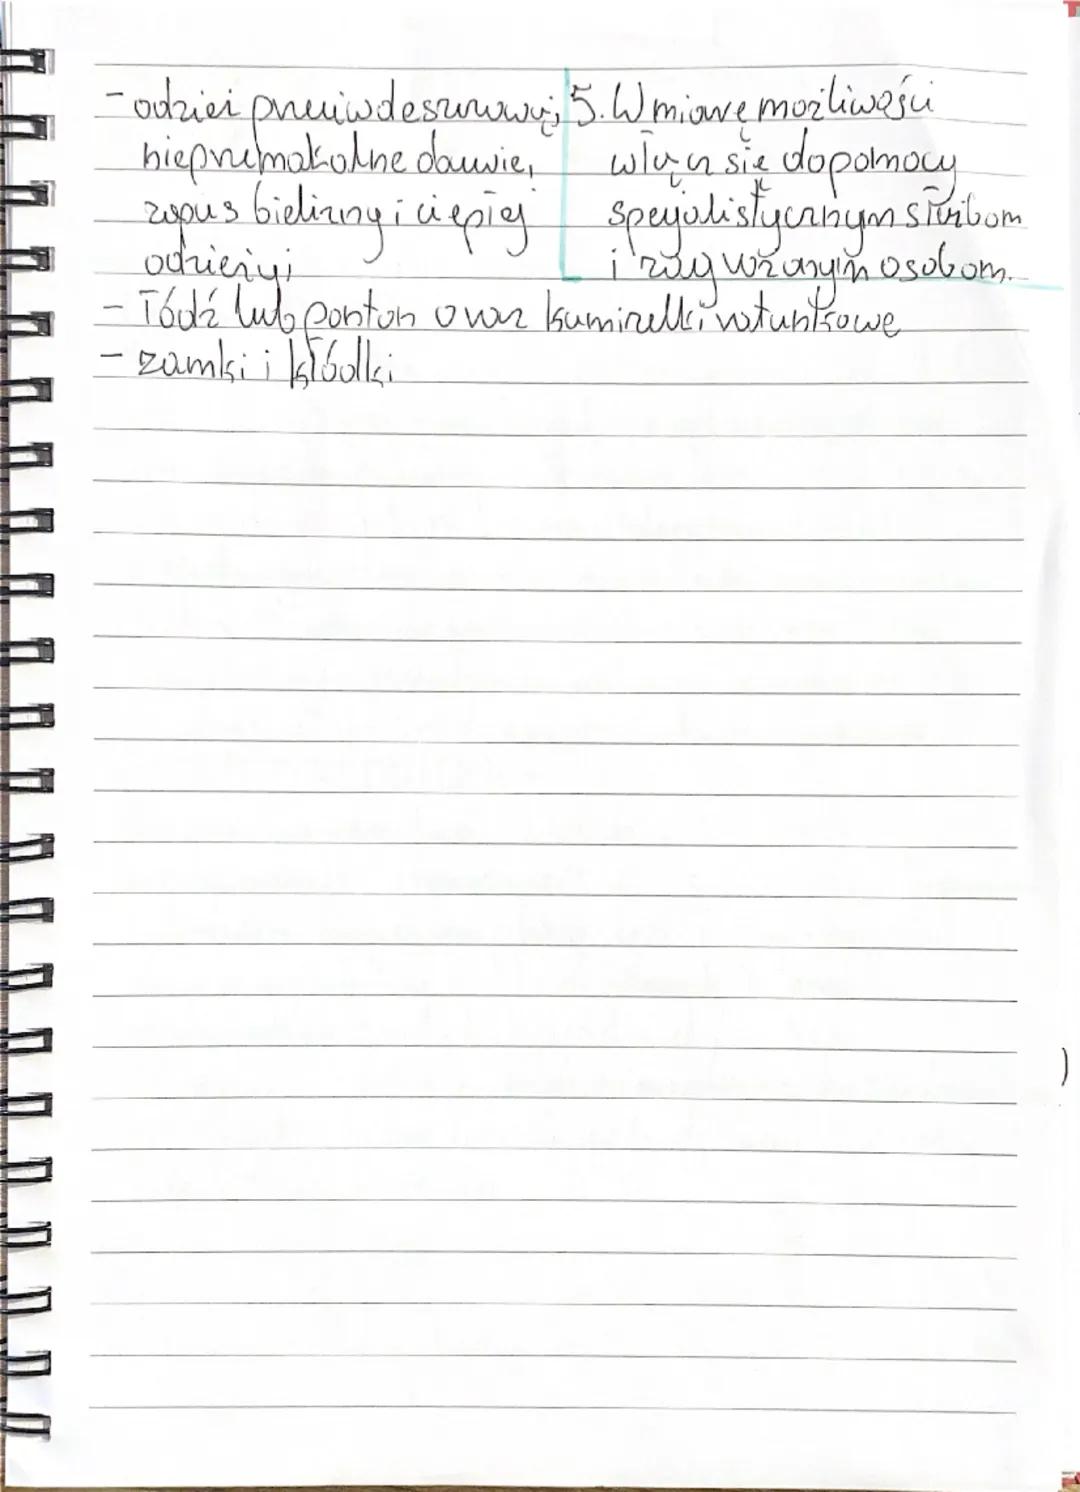 - odzież przeciwdeszczową,
nieprzemakalne obuwie,
zapas bielizny i ciepłej
odzieży;
5. W miarę możliwości
włącz się do pomocy
specjalistycznym służbom
i zagrożonym osobom.
- łódź lub ponton oraz kamizelki ratunkowe
- zamki i kłódki